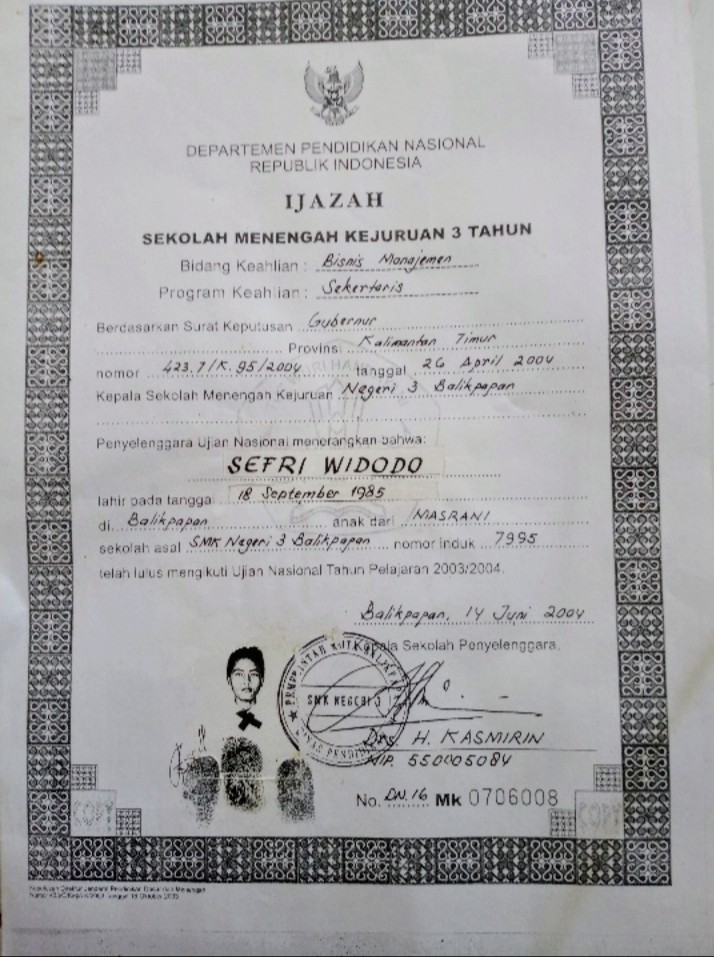 DEPARTEMEN PENDIDIKAN NASIONAL
REPUBLIK INDONESIA
IJAZAH
SEKOLAH MENENGAH KEJURUAN 3 TAHUN
Bidang Keahlian : Bisnis Manajemen
Program Keahlian : Sekertaris
Berdasarkan Surat Keputusan Gubernur
Provinsi Kalimantan Timur
nomor 423.7/K.95/2004 tanggal 26 April 2004
Kepala Sekolah Menengah Kejuruan Negeri 3 Balikpapan
Penyelenggara Ujian Nasional menerangkan bahwa:
SEFRI WIDODO
lahir pada tangga 18 September 1985
di Balikpapan anak dari MASRANI
sekolah asal SMK Negeri 3 Balikpapan nomor induk 7995
telah lulus mengikuti Ujian Nasional Tahun Pelajaran 2003/2004.
Balikpapan, 14 Juni 2004
Kepala Sekolah Penyelenggara,
PEMERINTAH KOTA
SMK NEGERI 3
DINAS
Drs. H. KASMIRIN
NIP. 550005084
No. DN.16 Mk 0706008
Keputusan Direktur Jenderal Pendidikan Dasar dan Menengah